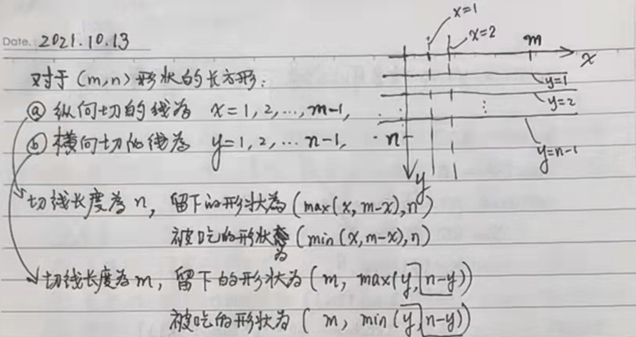 Date. 2021.10.13
对于(m,n)形状的长方形:
ⓐ 纵向切的线为 x=1,2,…,m-1,
ⓑ 横向切的线为 y=1,2,…n-1,
x=1
x=2
m
x
y=1
y=2
n
y=n-1
y
切线长度为n, 留下的形状为(max(x,m-x),n)
被吃的形状为(min(x,m-x),n)
切线长度为m, 留下的形状为(m, max(y,n-y))
被吃的形状为(m, min(y,n-y))